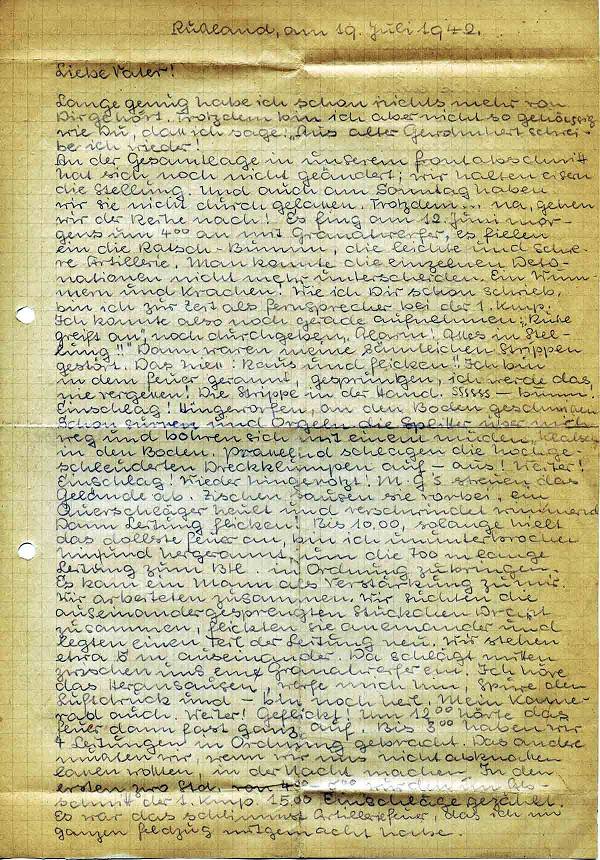 Rußland, am 19. Juli 1942.
Liebe Vater!
Lange genug habe ich schon nichts mehr von
Dir gehört. Trotzdem bin ich aber nicht so gehässig
wie Du, daß ich sage: "Aus alter Gewohnheit schrei-
be ich wieder!
An der Gesamtlage in unserem Frontabschnitt
hat sich noch nicht geändert; wir halten eisern
die Stellung. Und auch am Sonntag haben
wir sie nicht durch gelassen. Trotzdem... na, gehen
wir der Reihe nach! Es fing am 12. Juni mor-
gens um 4⁰⁰ an mit Granatwerfer, es fielen
ein die Ratsch-Bumm, die leichte und schwe-
re Artillerie. Man konnte die einzelnen Deto-
nationen nicht mehr unterscheiden. Ein Wum-
mern und Krachen! Wie ich Dir schon schrieb,
bin ich zur Zeit als Fernsprecher bei der 1. Kmp.
Ich konnte also noch gerade aufnehmen: "Russe
greift an", noch durchgeben "Alarm! Alles in Stel-
lung!!" Dann waren meine sämtlichen Strippen
gestört. Das hieß: Raus und flicken! Ich bin
in dem Feuer gerannt, gesprungen, ich werde das
nie vergessen! Die Strippe in der Hand. sssss — bumm.
Einschlag! Hingeworfen, an den Boden geschmissen
Schon surren und orgeln die Splitter über mich
weg und bohren sich mit einem müden, Klatsch
in den Boden. Prasselnd schlagen die hochge-
schleuderten Dreckklumpen auf – aus! Weiter!
Einschlag! Wieder hingerotzt! M.G's streuen das
Gelände ab. Zischen, sausen sie vorbei, ein
Querschläger heult und verschwindet wimmernd
Dann Leitung flicken! Bis 10,00, solange hielt
das dollste Feuer an, bin ich ununterbrochen
hin und hergerannt, um die 700 m lange
Leitung zum Btl. in Ordnung zu bringen.
Es kam ein Mann als Verstärkung zu mir.
Wir arbeiteten zusammen. Wir suchten die
auseinandergesprengten Stückchen Draht
zusammen, flickten sie aneinander und
legten einen Teil der Leitung neu. Wir stehen
etwa 8 m auseinander. Da schlägt mitten
zwischen uns eine Granatwerfer ein. Ich höre
das Heransausen, werfe mich hin, spüre den
Luftdruck und – bin noch heil. Mein Kame-
rad auch. Weiter! Geflickt! Um 12⁰⁰ hörte das
Feuer dann fast ganz auf. Bis 3⁰⁰ haben wir
4 Leitungen in Ordnung gebracht. Das andere
mußten wir, wenn wir uns nicht abknallen
lassen wollten, in der Nacht machen. In den
ersten zwo Std. von 4⁰⁰ wurden im Ab-
schnitt der 1. Kmp. 1500 Einschläge gezählt.
Es war das schlimmste Artilleriefeuer, das ich im
ganzen Feldzug mitgemacht habe.